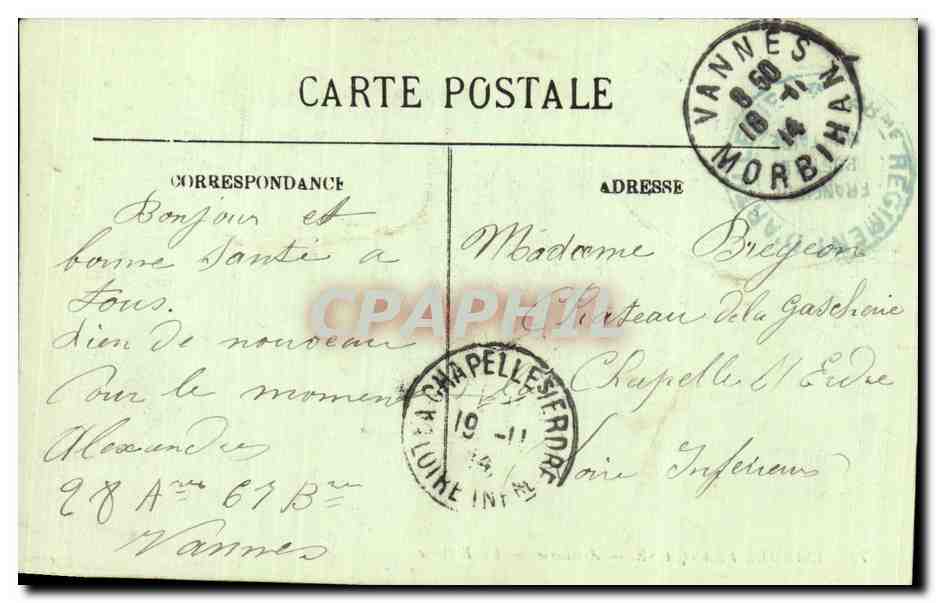 CARTE POSTALE
VANNES
8 50
18 -11
14
MORBIHAN
REGIMENT D'AR
FRAN
CORRESPONDANCE
Bonjour et
bonne santé a
tous.
Rien de nouveau
Pour le moment
Alexandre
28 Arie 67 Bie
Vannes
ADRESSE
Madame Bregeon
Chateau de la Gascherie
Chapelle S/ Erdre
Loire Inferieure
LA CHAPELLE S/ ERDRE
19 -11
14
LOIRE INFRE
CPAPHIL